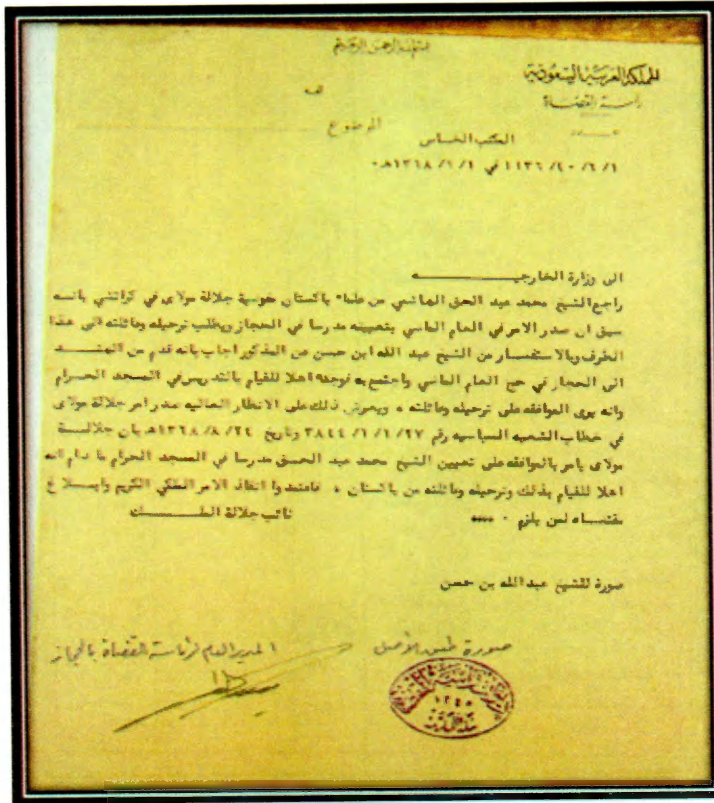 بسم الله الرحمن الرحيم
المملكة العربية السعودية
رئاسة القضاة
الموضوع
المكتب الخاص
الى وزارة الخارجيـــــــه
راجع الشيخ محمد عبد الحق الهاشمي من علماء باكستان خوسية جلالة مولاى في كراتشي بانه
سبق ان صدر الامر في العام الماضي بتعيينه مدرسا في الحجاز ويطلب ترحيله وعائلته الى هذا
الطرف وبالاستفسار من الشيخ عبد الله ابن حسن عن المذكور اجاب بانه قدم من الهنـــد
الى الحجاز في حج العام الماضي واجتمع به فوجده اهلا للقيام بالتدريس في المسجد الحرام
وانه يرى الموافقه على ترحيله وعائلته ، وبعرض ذلك على الانظار العاليه صدر امر جلالة مولاى
في خطاب الشعبه السياسيه رقم ٣٨٤٤/١/١/٢٧ وتاريخ ١٣٦٨/٨/٢٤هـ بان جلالـــة
مولاى يامر بالموافقه على تعيين الشيخ محمد عبد الحـق مدرسا في المسجد الحرام ما دام انه
اهلا للقيام بذلك وترحيله وعائلته من باكستان ، فاعتمدوا انفاذ الامر الملكي الكريم وابـــلاغ
مقتضاه لمن يلزم ٠
نائب جلالة الملــــك
صورة للشيخ عبد الله بن حسن
صورة طبق الأصل
المدير العام لرئاسة القضاة بالحجاز